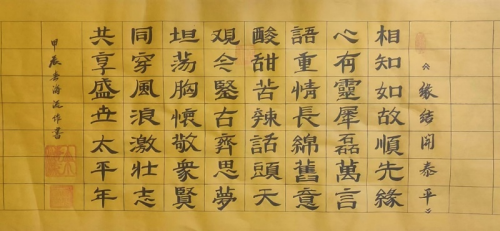 《缘结開泰平》
相知如故順先緣
心有靈犀磊萬言
語重情長綿舊意
酸甜苦辣話頭天
观今鑒古齊思夢
坦荡胸懷敬衆賢
同穿風浪激壯志
共享盛世太平年
甲辰春海泓作書